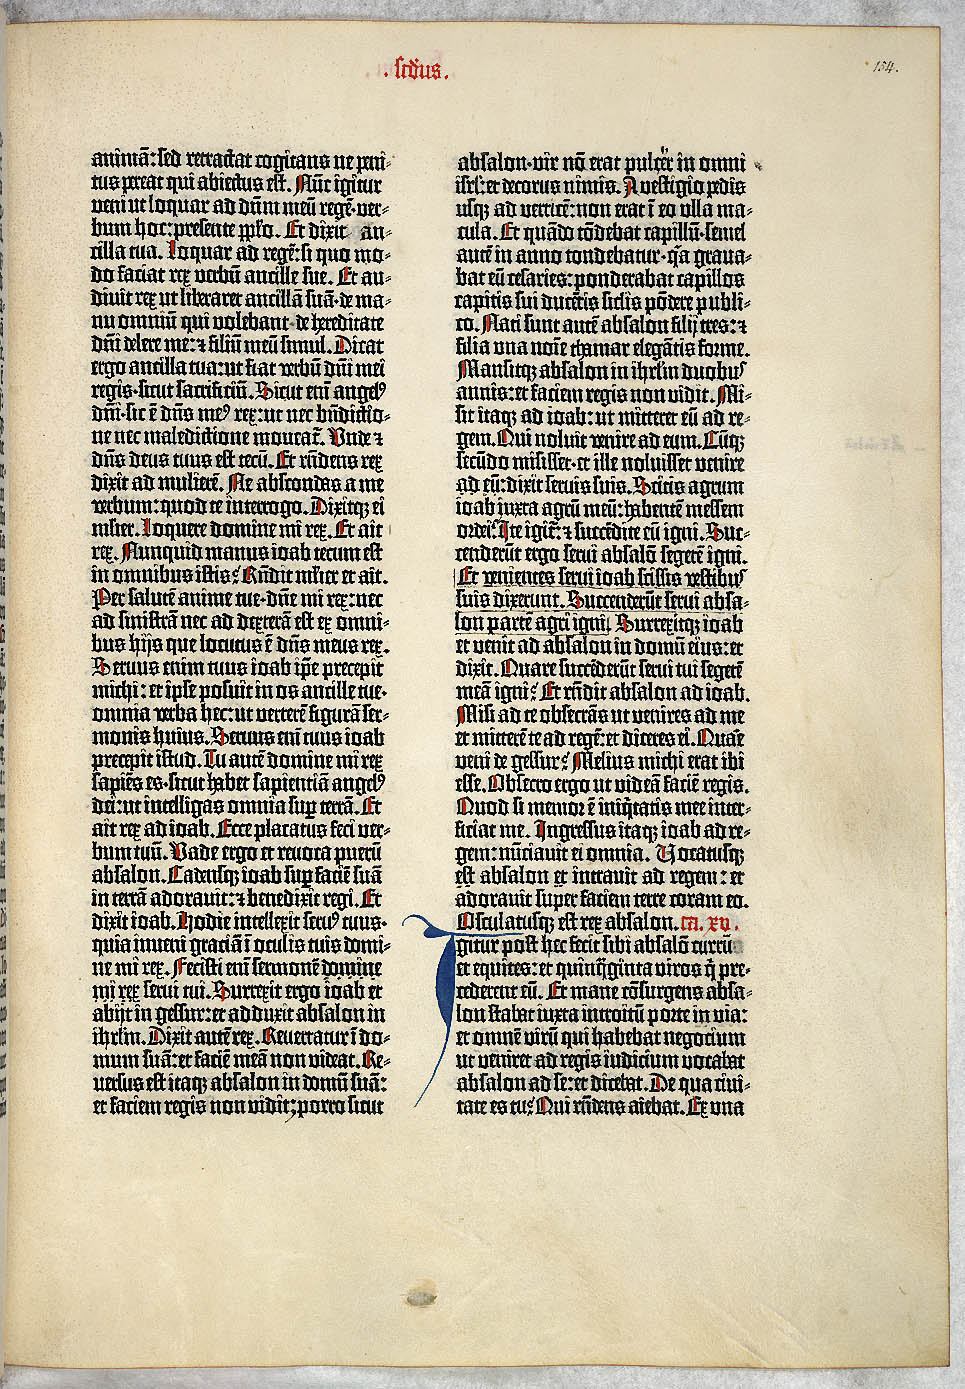 . scđus .
154.
animã: sed retractat cogitans ne peni-
tus pereat qui abiectus est. Nũc igitur
veni ut loquar ad dñm meũ regẽ· ver-
bum hoc: presente pp̃lo. Et dixit an-
cilla tua. Loquar ad regẽ: si quo mo-
do faciat rex verbũ ancille sue. Et au-
divit rex ut liberaret ancillã suã· de ma-
nu omniũ qui volebant· de hereditate
dñi delere me: ⁊ filiũ meũ simul. Dicat
ergo ancilla tua: ut fiat verbũ dñi mei
regis· sicut sacrificiũ. Sicut eni͂ angelꝰ
dñi· sic ẽ dñs meꝰ rex: ut nec bñdictio-
ne nec maledictione moueat᷑. Unde ⁊
dñs deus tuus est tecũ. Et rñdens rex
dixit ad mulierẽ. Ne abscondas a me
verbum: quod te interrogo. Dixitqꝫ ei
mĺier. Loquere domine mi rex. Et ait
rex. Nunquid manus ioab tecum est
in omnibus istis? Rñdit mĺier et ait.
Per salutẽ anime tue· dñe mi rex: nec
ad sinistrã nec ad dexterã est ex omni-
bus hijs que locutus ẽ dñs meus rex.
Seruus enim tuus ioab ip̃e precepit
michi: et ipse posuit in os ancille tue·
omnia verba hec: ut verterẽ figurã ser-
monis huius. Seruus eni͂ tuus ioab
precepit istud. Tu autẽ domine mi rex
sapiẽs es· sicut habet sapientiã angelꝰ
dei: ut intelligas omnia suꝑ terrã. Et
ait rex ad ioab. Ecce placatus feci ver-
bum tuũ. Vade ergo et reuoca puerũ
absalon. Cadensqꝫ ioab suꝑ faciẽ suã
in terrã adorauit: ⁊ benedixit regi. Et
dixit ioab. Hodie intellexit seruꝰ tuus·
quia inueni graciã ĩ oculis tuis domi-
ne mi rex. Fecisti eni͂ sermonẽ domine
mi rex serui tui. Surrexit ergo ioab et
abijt in gessur: et adduxit absalon in
ihrlm̃. Dixit autẽ rex. Reuertatur ĩ do-
mum suã: et faciẽ meã non videat. Re-
uersus est itaqꝫ absalon in domũ suã:
et faciem regis non vidit; porro sicut
absalon· vir nõ erat pulcer in omni
isrl̃: et decorus nimis. A vestigio pedis
usqꝫ ad verticẽ: non erat ĩ eo vlla ma-
cula. Et quãdo tõdebat capillũ· semel
autẽ in anno tondebatur· q̃a graua-
bat eũ cesaries: ponderabat capillos
capitis sui ducẽtis siclis põdere publi-
co. Nati sunt autẽ absalon filij tres: ⁊
filia vna noĩe thamar elegãtis forme.
Mansitqꝫ absalon in ihrl̃m duobuꝰ
annis: et faciem regis non vidit. Mi-
sit itaqꝫ ad ioab: ut mitteret eũ ad re-
gem. Qui noluit venire ad eum. Cũqꝫ
secũdo misisset· et ille noluisset venire
ad eũ: dixit seruis suis. Scitis agrum
ioab juxta agrũ meũ: habentẽ messem
ordei? Ite igit᷑: ⁊ succẽdite eũ igni. Suc-
cenderũt ergo serui absalõ segetẽ igni.
Et venientes serui ioab scissis vestibuꝰ
suis dixerunt. Succenderũt serui absa-
lon partẽ agri igni. Surrexitqꝫ ioab
et venit ad absalon in domũ eius: et
dixit. Quare succẽderũt serui tui segetẽ
meã igni? Et rñdit absalon ad ioab.
Misi ad te obsecrãs ut venires ad me
et mitterẽ te ad regẽ: et diceres ei. Quare
veni de gessur? Melius michi erat ibi
esse. Obsecro ergo ut videã faciẽ regis.
Quod si memor ẽ iniq̃tatis mee inter-
ficiat me. Ingressus itaqꝫ ioab ad re-
gem: nũciauit ei omnia. Vocatusqꝫ
est absalon et intrauit ad regem: et
adorauit super faciem terre coram eo.
Osculatusqꝫ est rex absalon. ca. xv.
Igitur post hec fecit sibi absalõ currũ
et equites: et quinq̃ginta viros q̃ pre-
cederent eũ. Et mane cõsurgens absa-
lon stabat iuxta introitũ porte in via:
et omnẽ virũ qui habebat negocium
ut veniret ad regis iudicium vocabat
absalon ad se: et dicebat. De qua ciui-
tate es tu? Qui rñdens aiebat. Ex vna